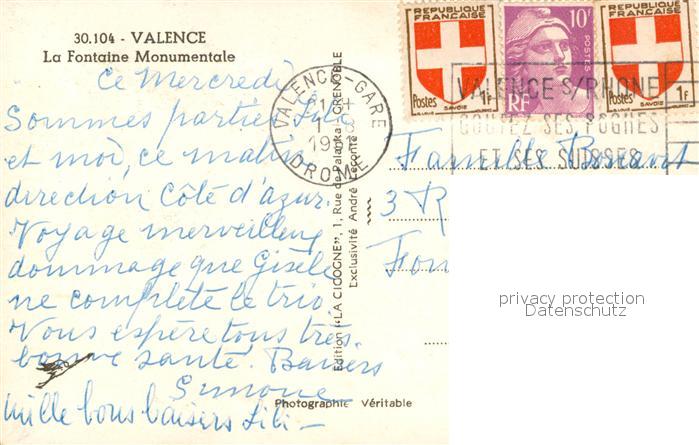 30.104 - VALENCE
La Fontaine Monumentale
Ce Mercredi
Sommes parties Lili
et moi, ce matin
direction Côte d'azur.
Voyage merveilleux
dommage que Gisèle
ne complète le trio.
Vous espère tous très
bonne santé. Baisers
Simone
Mille bons baisers Lili
Photographie Véritable
Edition "LA CICOGNE", 1, Rue de GRENOBLE
Exclusivité André Lecomte
VALENCE-GARE
DROME
REPUBLIQUE FRANÇAISE
Postes SAVOIE 1F
10F
POSTES
RF
REPUBLIQUE FRANÇAISE
Postes SAVOIE 1F
VALENCE S/RHONE
GOUTEZ SES POGNES
ET SES SUISSES
Famille
3 R
privacy protection
Datenschutz